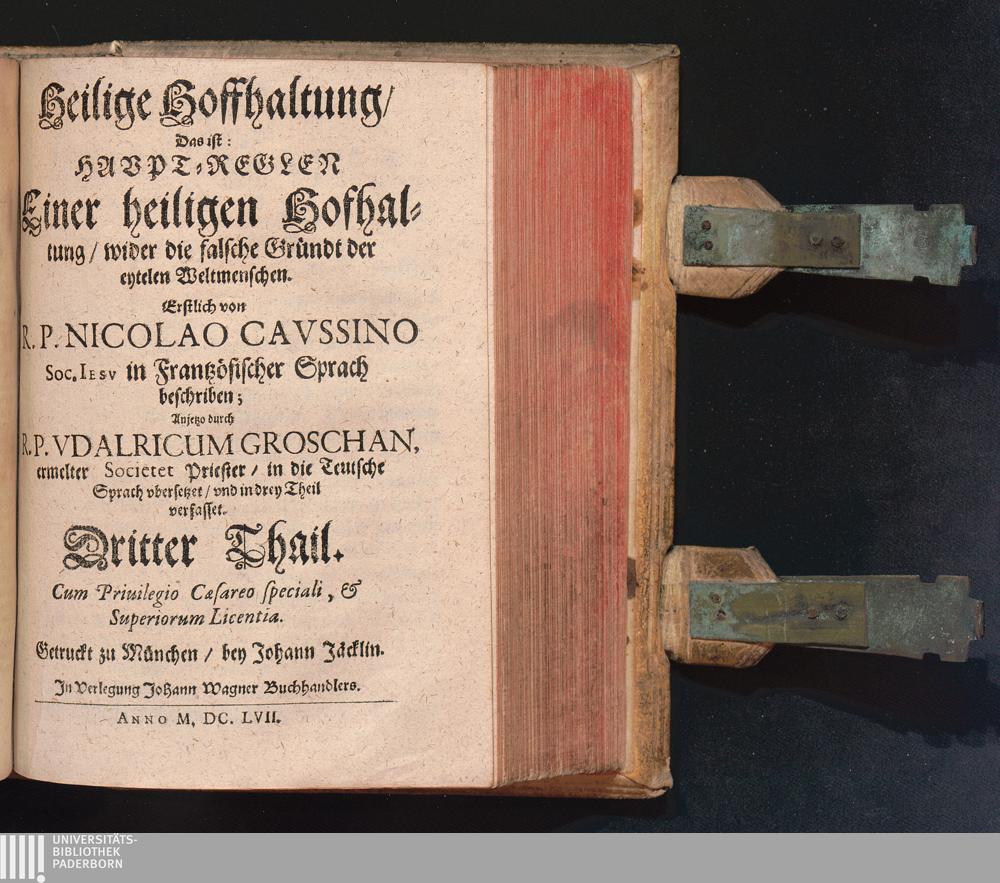 Heilige Hoffhaltung/
Das ist:
HAVPT-REGLEN
Einer heiligen Hofhal-
tung / wider die falsche Gründt der
eytelen Weltmenschen.
Erstlich von
R. P. NICOLAO CAVSSINO
Soc. IESV in Frantzösischer Sprach
beschriben;
Anjetzo durch
R. P. VDALRICUM GROSCHAN,
ermelter Societet Priester / in die Teutsche
Sprach vbersetzet / vnd in drey Theil
verfasset.
Dritter Thail.
Cum Priuilegio Cæsareo speciali, &
Superiorum Licentia.
Getruckt zu München / bey Johann Jäcklin.
In Verlegung Johann Wagner Buchhandlers.
ANNO M. DC. LVII.
UNIVERSITÄTS-
BIBLIOTHEK
PADERBORN